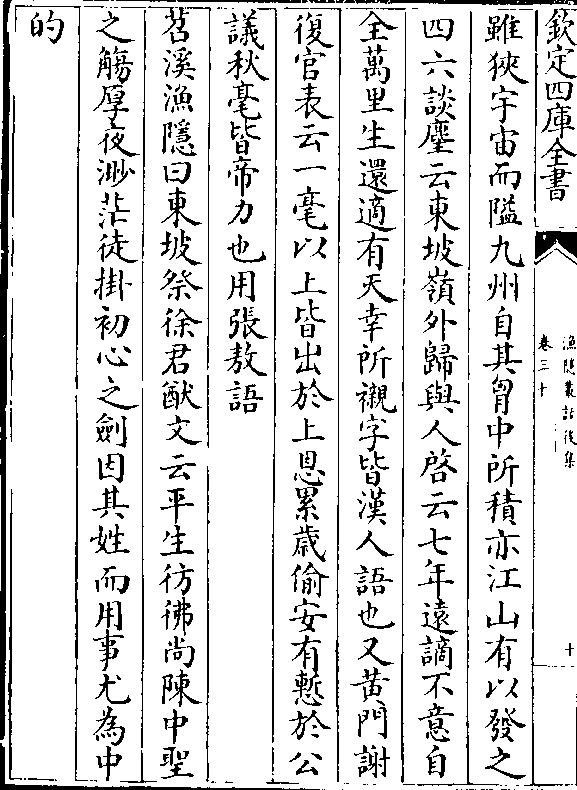 欽定四庫全書
漁隱叢話後集
卷三十
十
雖狹宇宙而隘九州自其胷中所積亦江山有以發之
四六談麈云東坡嶺外歸與人啓云七年遠謫不意自
全萬里生還適有天幸所襯字皆漢人語也又黃門謝
復官表云一毫以上皆出於上恩累歲偷安有慙於公
議秋毫皆帝力也用張敖語
苕溪漁隱曰東坡祭徐君猷文云平生彷彿尚陳中聖
之觴厚夜渺茫徒掛初心之劍因其姓而用事尤為中
的